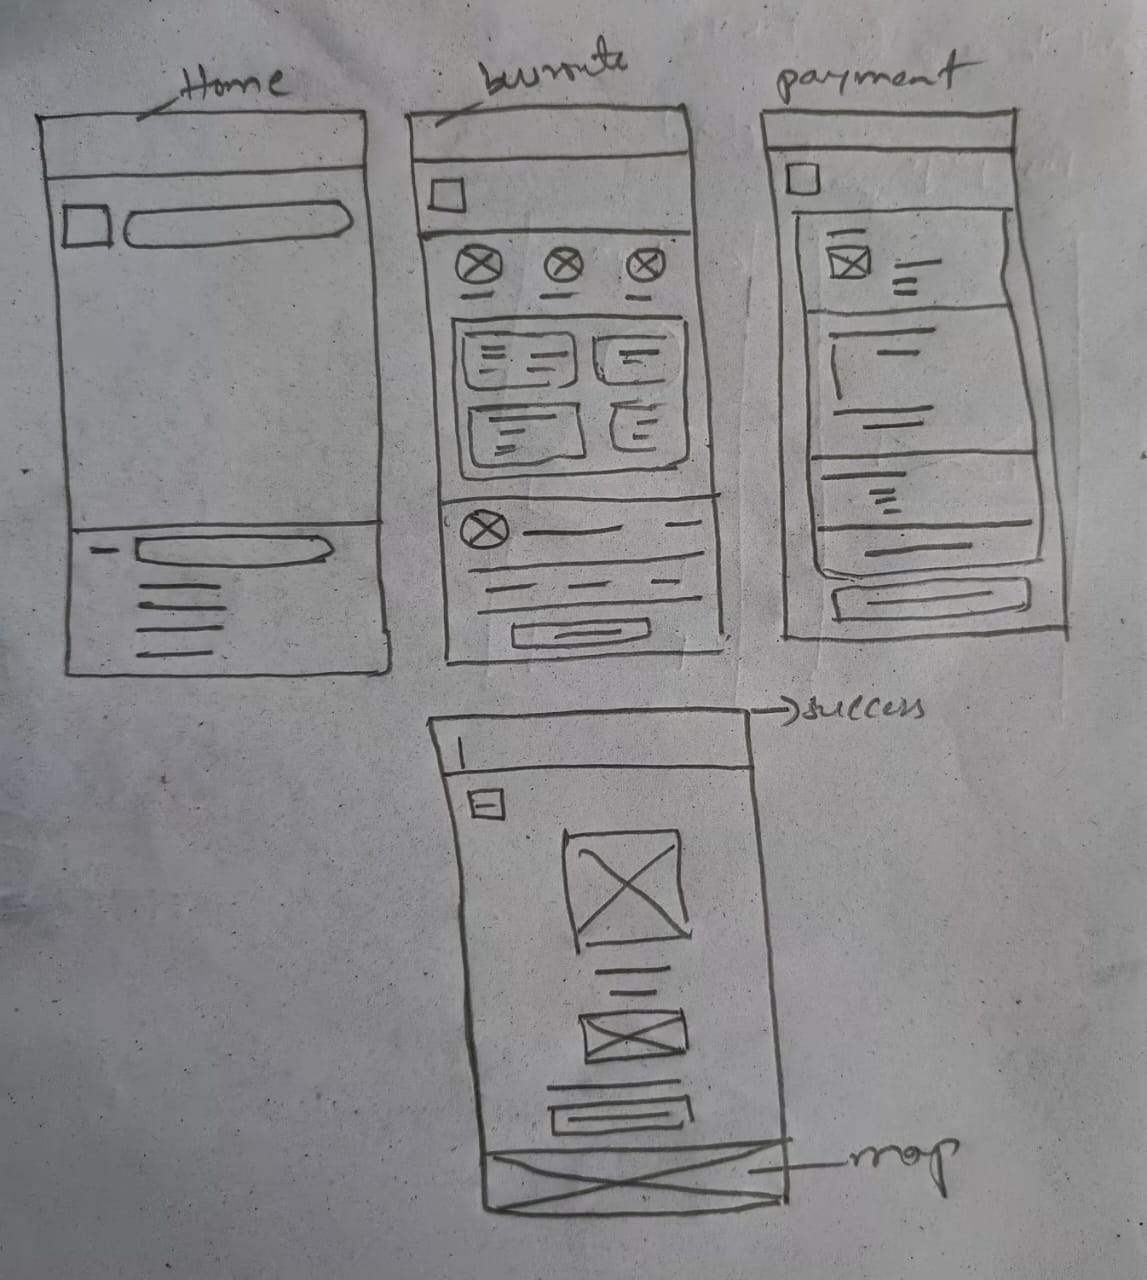 Home
busroute
payment
success
map